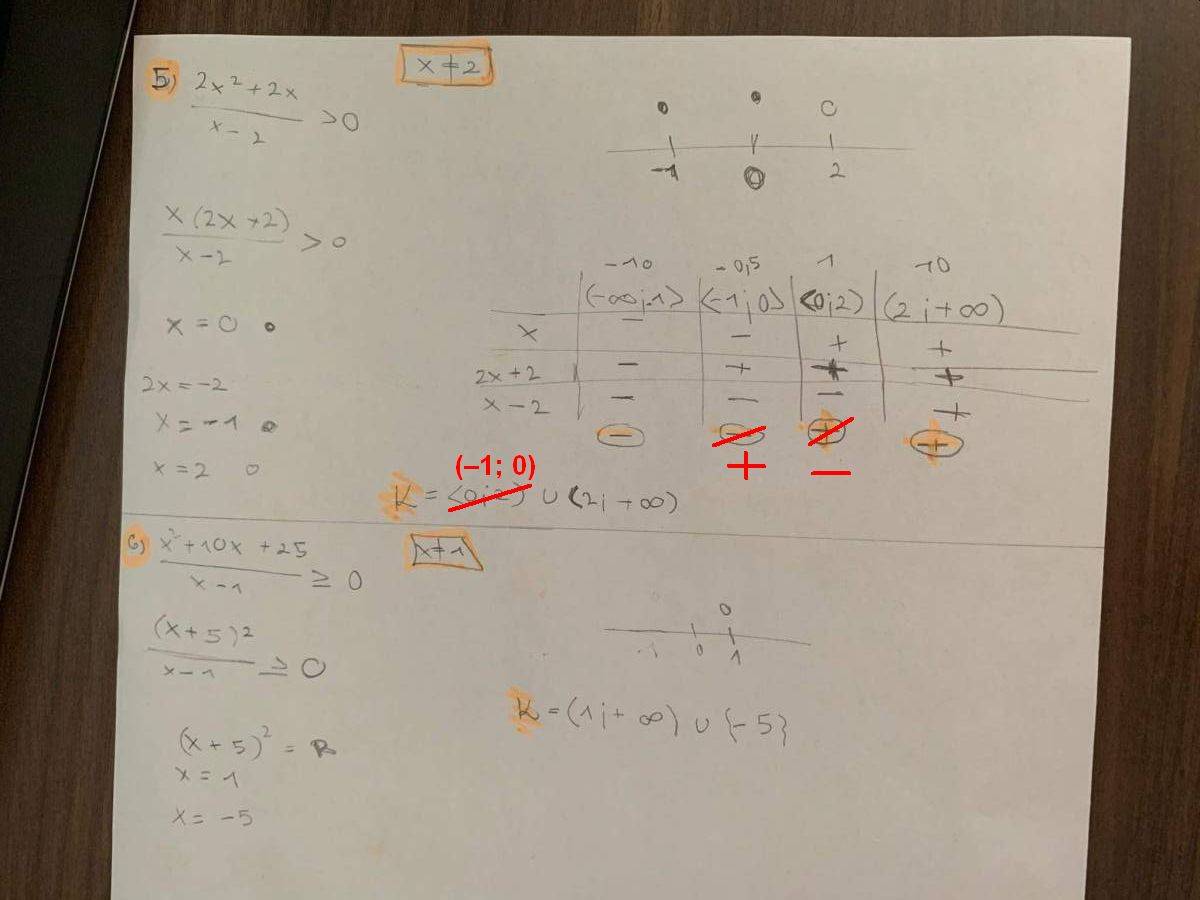 5) (2x² + 2x)/(x - 2) > 0
x ≠ 2
-1 0 2
x(2x + 2)/(x - 2) > 0
x = 0
2x = -2
x = -1
x = 2
-10 -0,5 1 10
(-∞;-1> <-1;0> <0;2) (2;+∞)
x - - + +
2x+2 - + + +
x-2 - - - +
- - + +
+ -
(–1; 0)
K = <0;2) ∪ (2;+∞)
6) (x² + 10x + 25)/(x - 1) ≥ 0
x ≠ 1
(x + 5)²/(x - 1) ≥ 0
-1 0 1
K = (1;+∞) ∪ {-5}
(x + 5)² = R
x = 1
x = -5